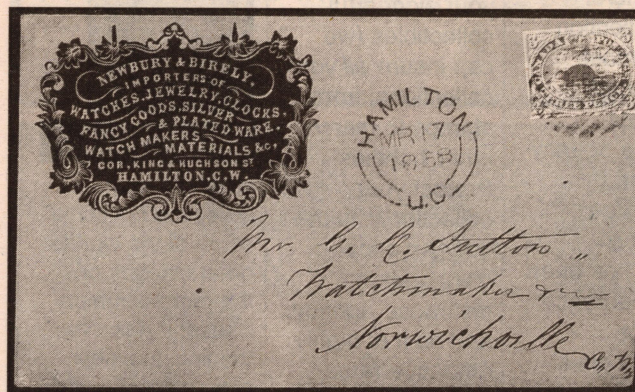 NEWBURY & BIRELY,
IMPORTERS OF
WATCHES, JEWELRY, CLOCKS,
FANCY GOODS, SILVER
& PLATED WARE.
WATCH MAKERS MATERIALS &c,
COR. KING & HUGHSON ST
HAMILTON, C.W.
HAMILTON.
MR 17
1858
U.C
Mr. C. Sutton "
Watchmaker
Norwichville
C.W.